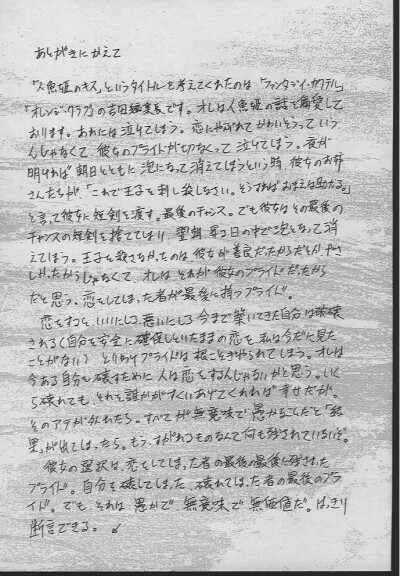 あとがきにかえて
「人魚姫のキス」というタイトルを考えてくれたのは「ファンタジィ・カクテル」
「オレンジ・クラブ」の吉田編集長です。オレは人魚姫の話を偏愛して
おります。あれには泣けてしまう。恋にやぶれてかわいそうっていう
んじゃなくて、彼女のプライドが切なくって泣けてしまう。夜が
明ければ朝日とともに泡になって消えてしまうという時、彼女のお姉
さんたちが、「これで王子を刺し殺しなさい。そうすればおまえは助かる」
と言って彼女に短剣を渡す。最後のチャンス。でも彼女はその最後の
チャンスの短剣を捨ててしまい、翌朝、朝日の中で泡となって消
えてしまう。王子を殺さなかったのは、彼女が善良だったからだとか、やさ
しかったからじゃなくて、オレはそれが彼女のプライドだったから
だと思う。恋をしてしまった者が最後に持つプライド。
恋をすると、いいにしろ悪いにしろ今まで築いてきた自分は破壊
される（自分を安全に確保しといたままの恋を、私は今だに見た
ことがない）とりわけプライドは根こそぎやられてしまう。オレは
今ある自分を壊すために人は恋をするんじゃないかと思う。いく
ら壊れても、それを誰かがすくいあげてくれれば幸せだが、
そのアテが外れたら。すべてが無意味で愚かなことだと「結
果」が出てしまったら。もう、すがれるものなんて何も残されていないぞ。
彼女の選択は、恋をしてしまった者の最後の最後に残された
プライド。自分を壊してしまった、壊れてしまった者の最後のプラ
イド。でも、それは愚かで、無意味で、無価値だ。はっきり
断言できる。